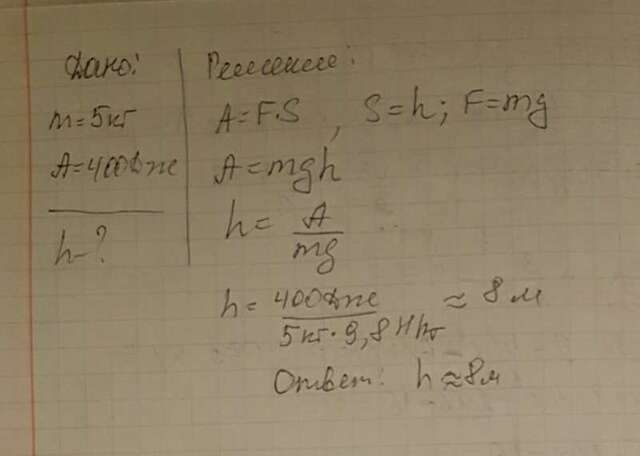 Дано:
m=5кг
A=400Дж
h-?
Решение:
A=F·S , S=h; F=mg
A=mgh
h= A/mg
h= 400Дж/5кг·9,8Н/кг ≈ 8м
Ответ: h≈8м